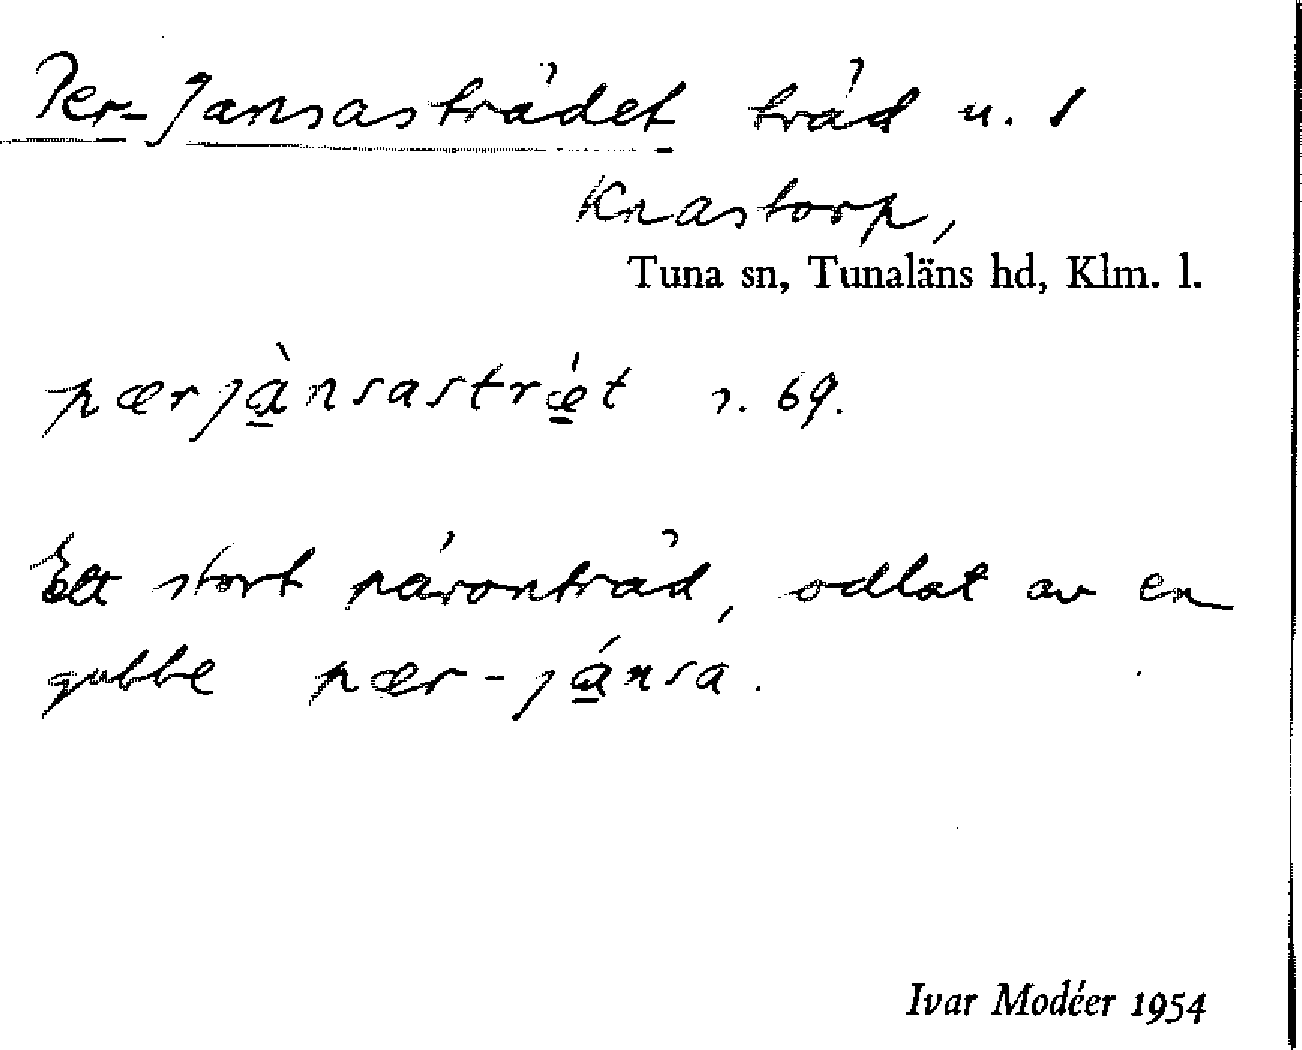 Per-Jansasträdet träd u. 1
Knastorp,
Tuna sn, Tunaläns hd, Klm. l.
pærjànsastrǽt s. 69.
Ett stort päronträd, odlat av en
gubbe pær-jánsa.
Ivar Modéer 1954